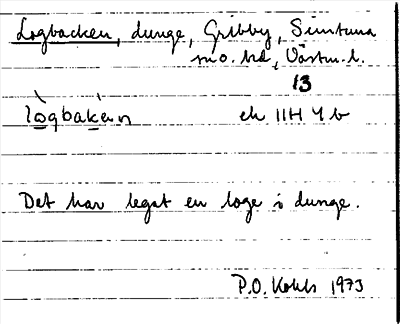 Logbacken, dunge, Gribby, Simtuna
sn o. hd, Västm. l.
13
lògbakèn ek 11H 4b
Det har legat en loge i dunge.
P.O. Kohls 1973